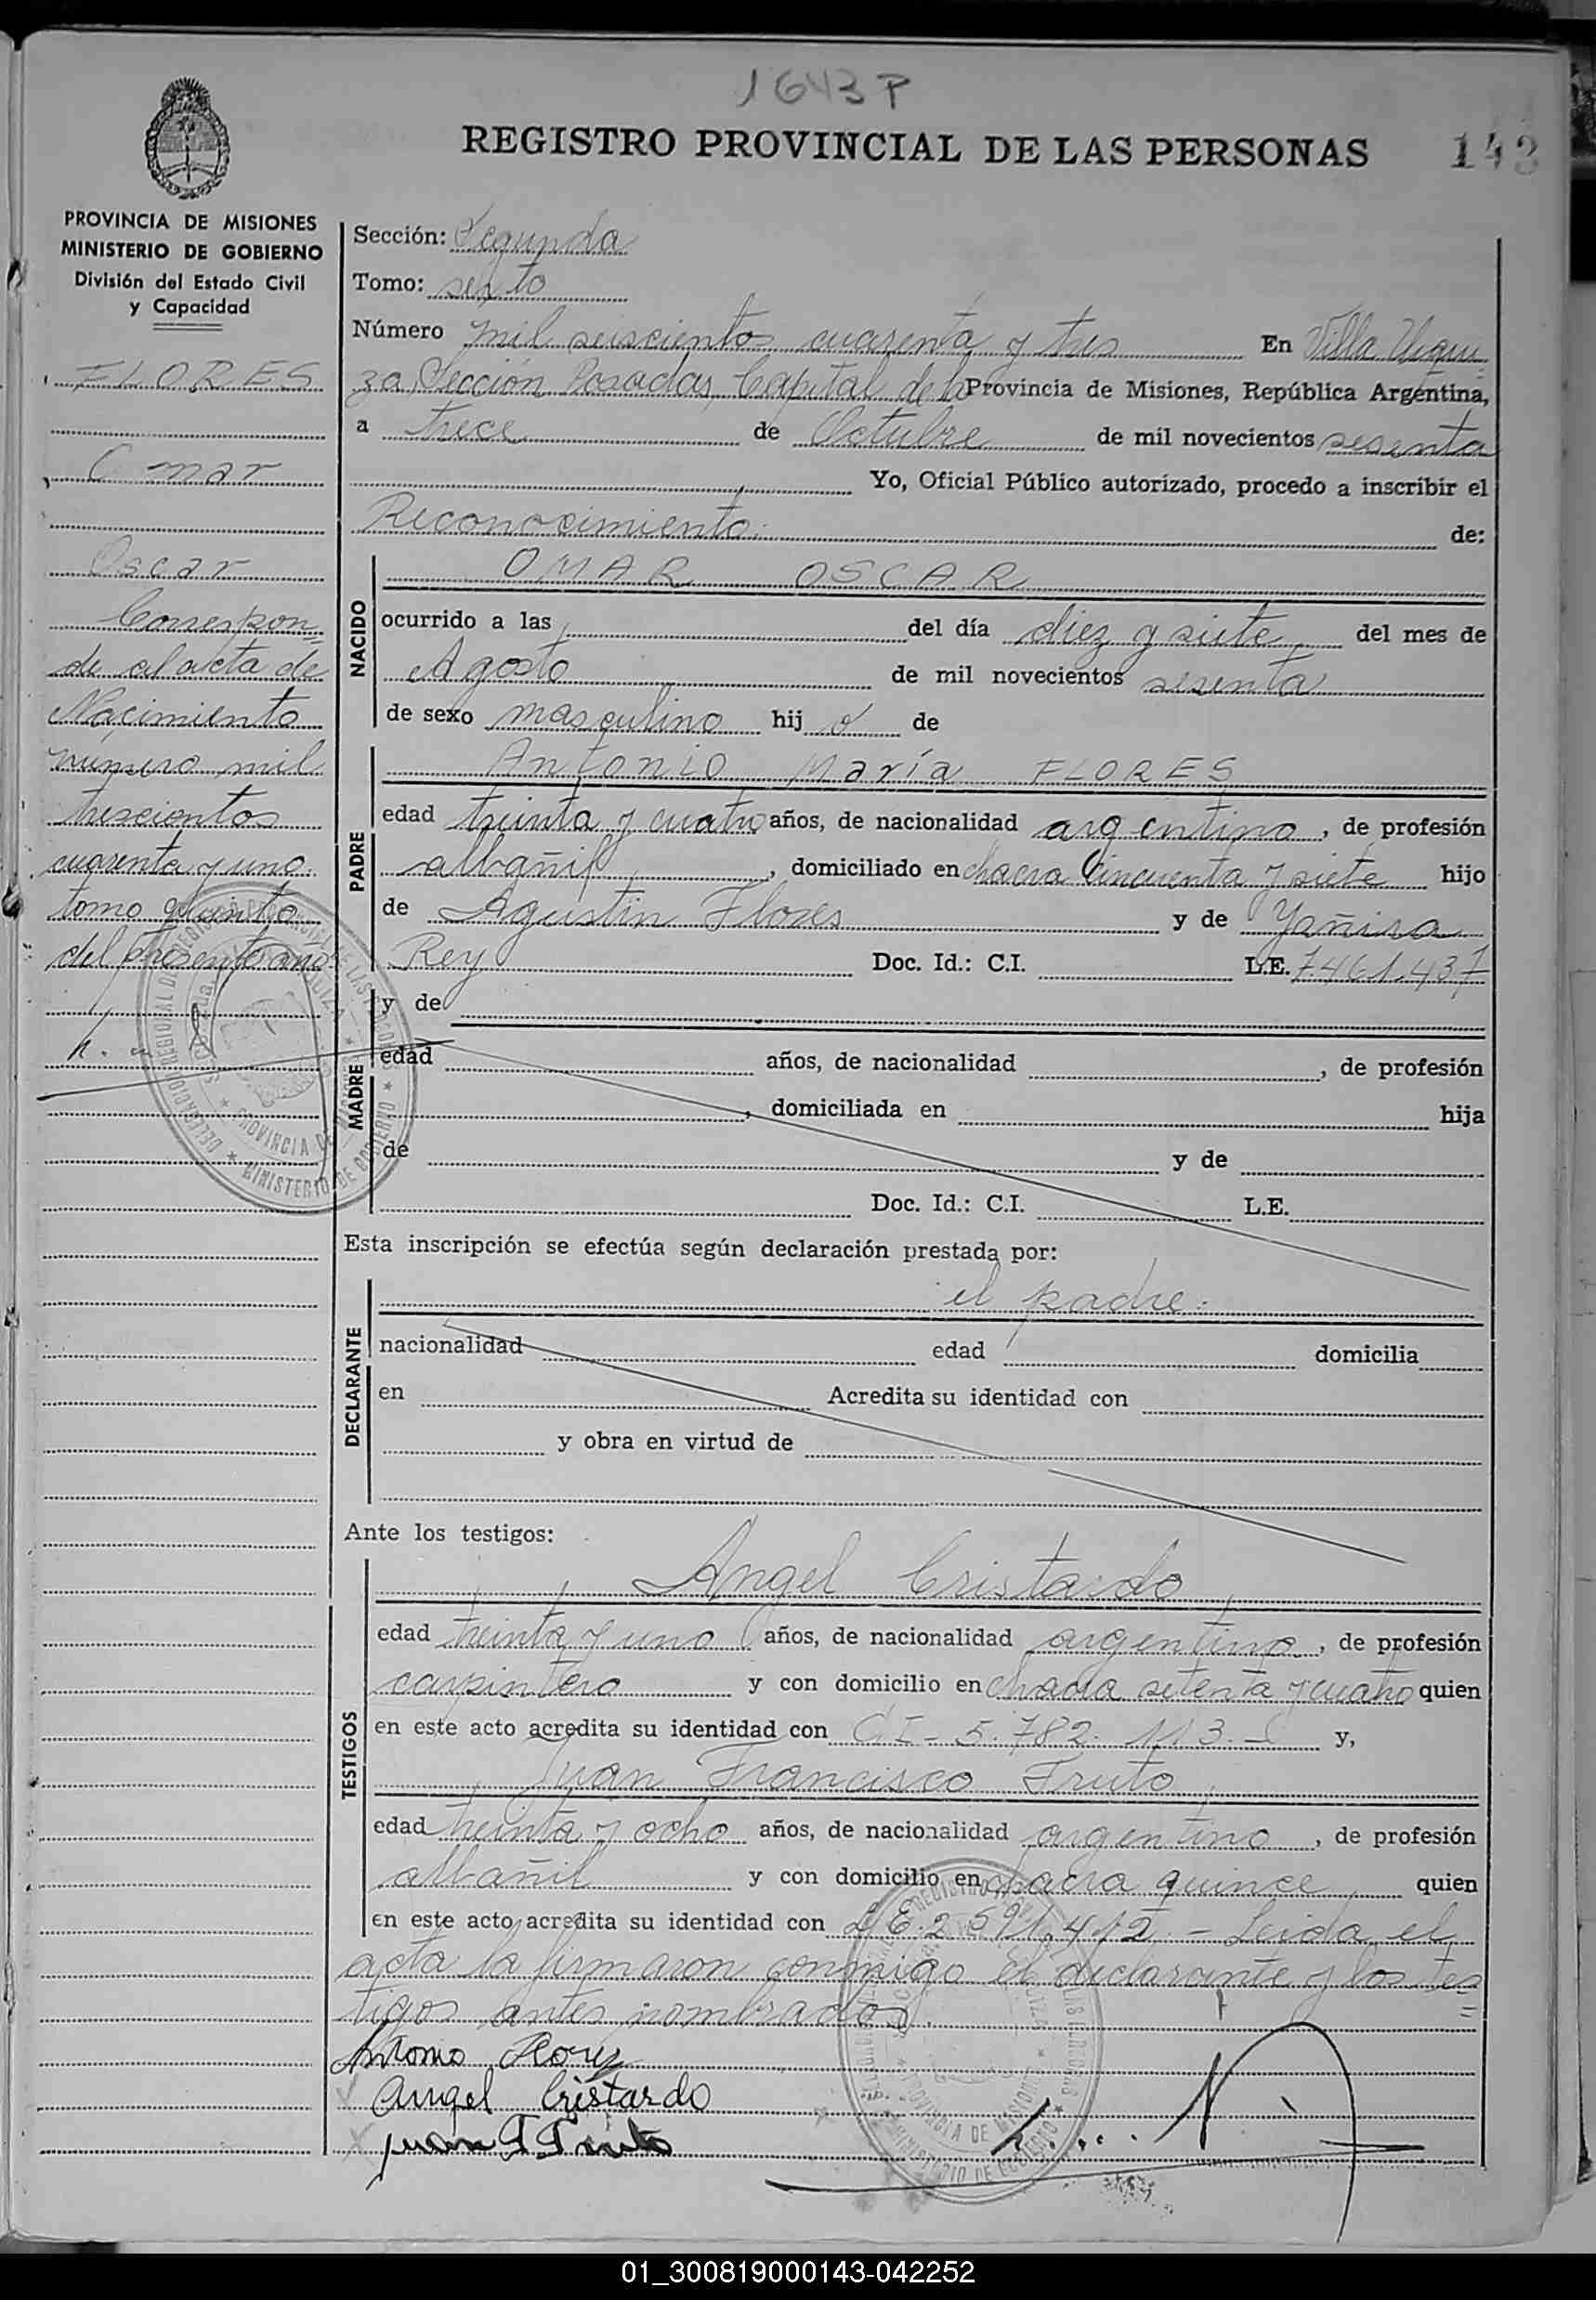 1643 P
REGISTRO PROVINCIAL DE LAS PERSONAS
PROVINCIA DE MISIONES
MINISTERIO DE GOBIERNO
División del Estado Civil
y Capacidad
FLORES
Omar
Oscar
Correspon
de al acta de
Nacimiento
número mil
trescientos
cuarenta y uno
tomo quinto
del presente año
Sección: Segunda
Tomo: sexto
Número mil seiscientos cuarenta y tres En Villa Urqui
za Sección Posadas, Capital de la Provincia de Misiones, República Argentina,
a trece de Octubre de mil novecientos sesenta
Yo, Oficial Público autorizado, procedo a inscribir el
Reconocimiento de:
NACIDO
OMAR OSCAR
ocurrido a las del día diez y siete del mes de
Agosto de mil novecientos sesenta
de sexo masculino hijo de
PADRE
Antonio María FLORES
edad treinta y cuatro años, de nacionalidad argentino, de profesión
albañil, domiciliado en chacra cincuenta y siete hijo
de Agustin Flores y de Yañira
Rey Doc. Id.: C.I. L.E. 7.461.437
MADRE
y de
edad años, de nacionalidad , de profesión
, domiciliada en hija
de y de
Doc. Id.: C.I. L.E.
Esta inscripción se efectúa según declaración prestada por:
DECLARANTE
el padre.
nacionalidad edad domicilia
en Acredita su identidad con
y obra en virtud de
Ante los testigos:
TESTIGOS
Angel Cristardo
edad treinta y uno años, de nacionalidad argentino, de profesión
carpintero y con domicilio en chacra setenta y cuatro quien
en este acto acredita su identidad con C.I - 5.782.113.- y,
Juan Francisco Fruto
edad treinta y ocho años, de nacionalidad argentino, de profesión
albañil y con domicilio en chacra quince quien
en este acto acredita su identidad con L.E. 2.591.412.- Leida el
acta la firmaron conmigo el declarante y los tes
tigos antes nombrados.
Antonio Flores
Angel Cristardo
Juan F Fruto
01_300819000143-042252